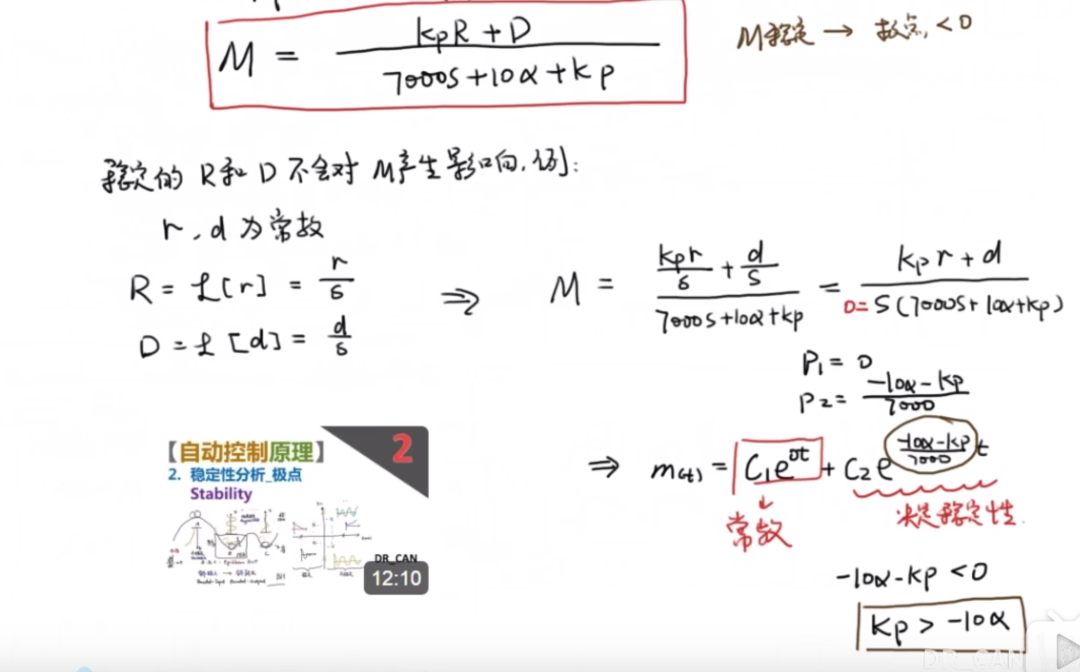 M = (kpR + D) / (7000S + 10α + kp)
M稳定 → 极点 < 0
稳定的 R和 D 不会对 M产生影响. 例:
r , d 为常数
R = ℒ[r] = r/s
D = ℒ[d] = d/s
⇒ M = (kpr/s + d/s) / (7000s + 10α + kp) = (kpr + d) / (S(7000S + 10α + kp))
0=
P1 = 0
P2 = (-10α - kp) / 7000
⇒ m(t) = C1e^0t + C2e^((-10α - kp)/7000)t
常数
决定稳定性.
-10α - kp < 0
kp > -10α
【自动控制原理】
2
2. 稳定性分析_极点
Stability
DR_CAN
12:10
DR_CAN